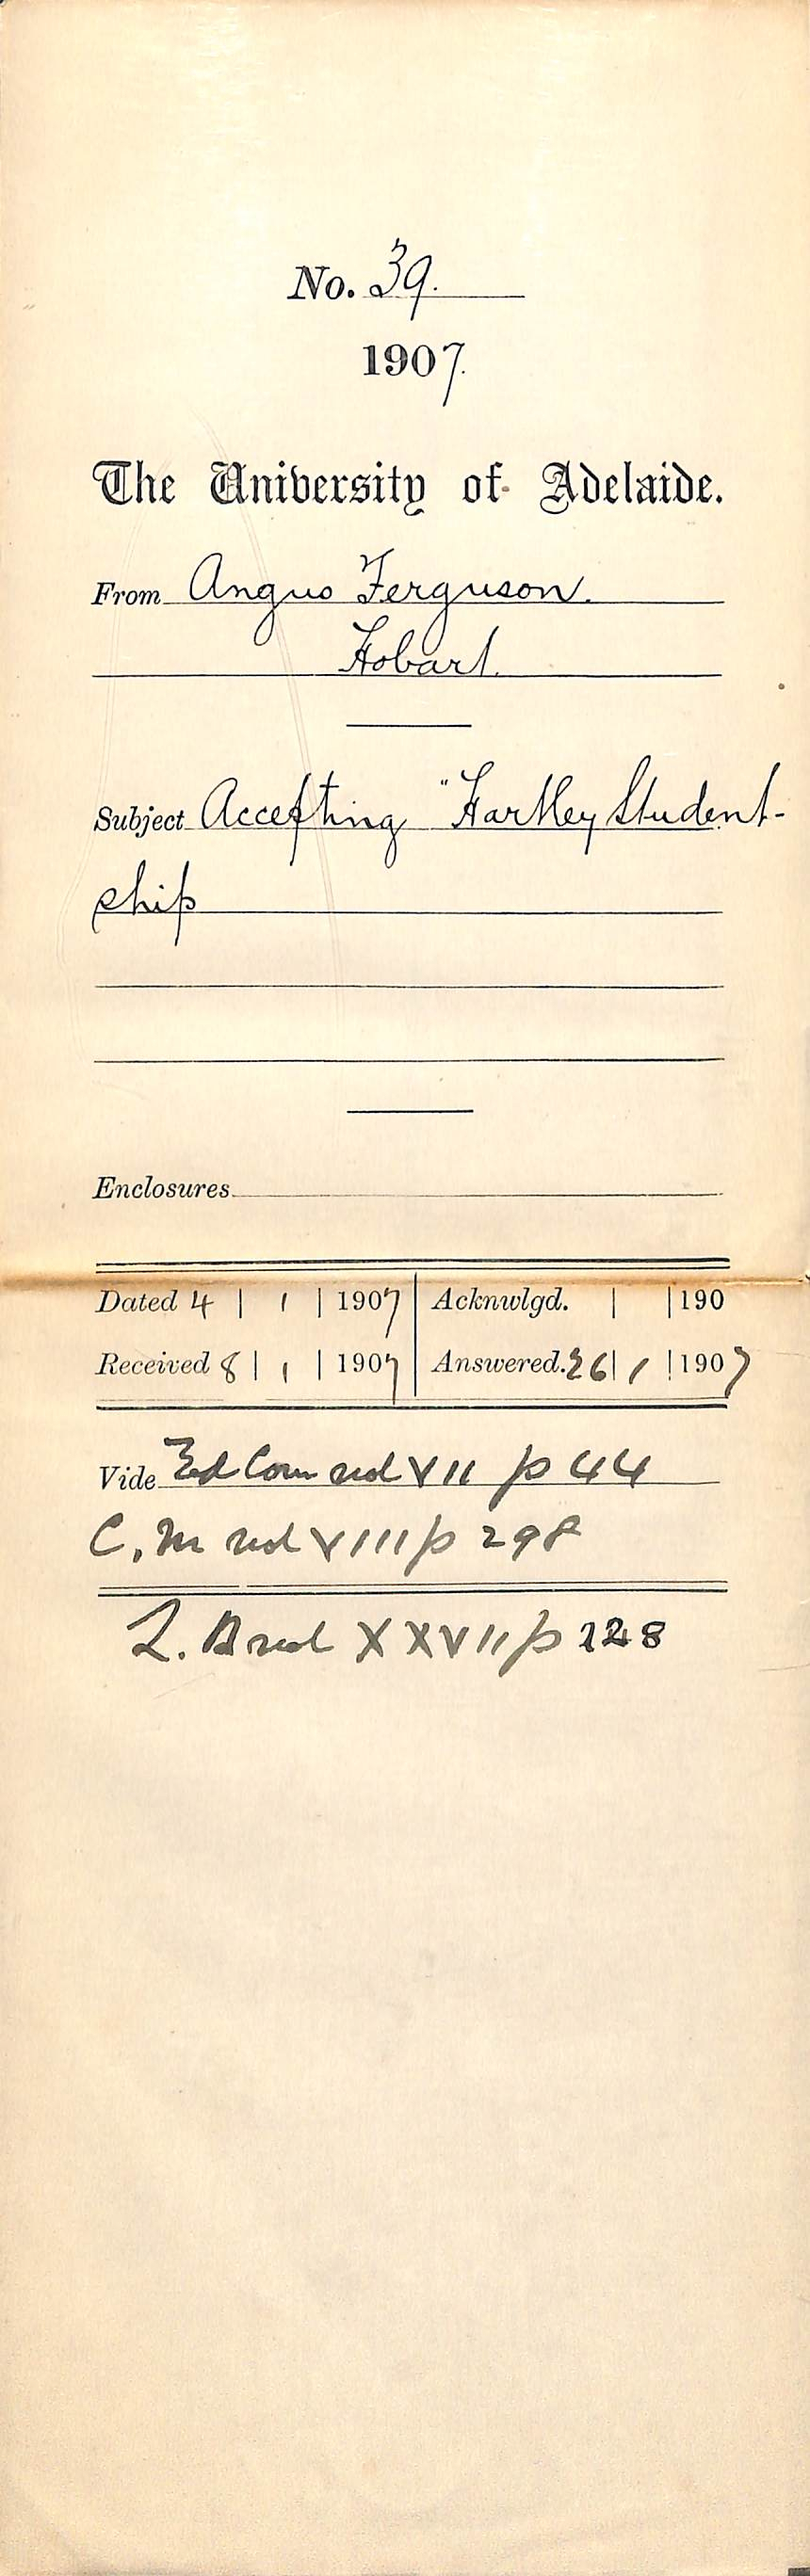 No. 39.
1907.
The University of Adelaide.
From Angus Ferguson.
Hobart.
Subject Accepting "Hartley Student-
ship
Enclosures
Dated 4 | 1 | 1907 | Acknwlgd. | | 190
Received 8 | 1 | 1907 | Answered. 26 | 1 | 1907
Vide Ed Com vol VII p 44
C. M vol VIII p 298
L. B vol XXVII p 228